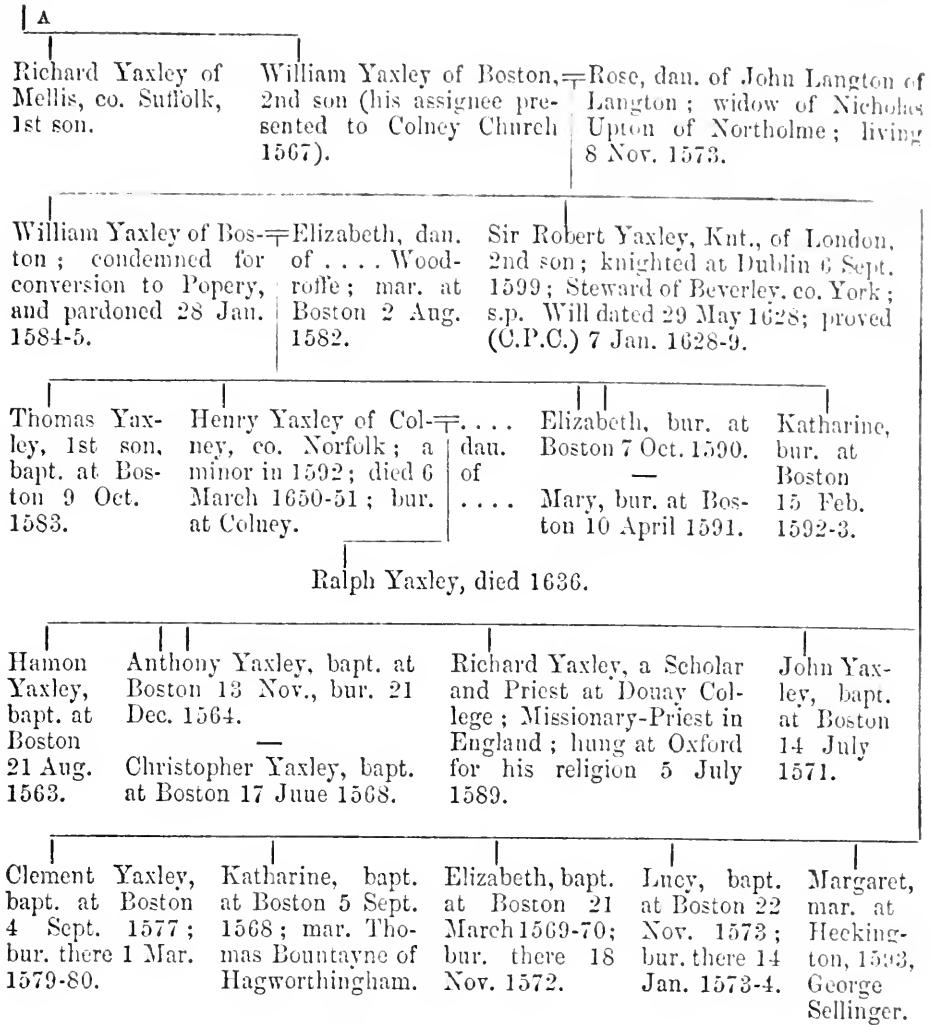 A
Richard Yaxley of
Mellis, co. Suffolk,
1st son.
William Yaxley of Boston,
2nd son (his assignee pre-
sented to Colney Church
1567).
Rose, dau. of John Langton of
Langton ; widow of Nicholas
Upton of Northolme ; living
8 Nov. 1573.
William Yaxley of Bos-
ton ; condemned for
conversion to Popery,
and pardoned 28 Jan.
1584-5.
Elizabeth, dau.
of . . . . Wood-
roffe ; mar. at
Boston 2 Aug.
1582.
Sir Robert Yaxley, Knt., of London,
2nd son ; knighted at Dublin 6 Sept.
1599 ; Steward of Beverley, co. York ;
s.p. Will dated 29 May 1628; proved
(C.P.C.) 7 Jan. 1628-9.
Thomas Yax-
ley, 1st son,
bapt. at Bos-
ton 9 Oct.
1583.
Henry Yaxley of Col-
ney, co. Norfolk ; a
minor in 1592 ; died 6
March 1650-51 ; bur.
at Colney.
. . . .
dau.
of
. . . .
Elizabeth, bur. at
Boston 7 Oct. 1590.
—
Mary, bur. at Bos-
ton 10 April 1591.
Katharine,
bur. at
Boston
15 Feb.
1592-3.
Ralph Yaxley, died 1636.
Hamon
Yaxley,
bapt. at
Boston
21 Aug.
1563.
Anthony Yaxley, bapt. at
Boston 13 Nov., bur. 21
Dec. 1564.
—
Christopher Yaxley, bapt.
at Boston 17 June 1568.
Richard Yaxley, a Scholar
and Priest at Douay Col-
lege ; Missionary-Priest in
England ; hung at Oxford
for his religion 5 July
1589.
John Yax-
ley, bapt.
at Boston
14 July
1571.
Clement Yaxley,
bapt. at Boston
4 Sept. 1577 ;
bur. there 1 Mar.
1579-80.
Katharine, bapt.
at Boston 5 Sept.
1568 ; mar. Tho-
mas Bountayne of
Hagworthingham.
Elizabeth, bapt.
at Boston 21
March 1569-70;
bur. there 18
Nov. 1572.
Lucy, bapt.
at Boston 22
Nov. 1573 ;
bur. there 14
Jan. 1573-4.
Margaret,
mar. at
Hecking-
ton, 1593,
George
Sellinger.